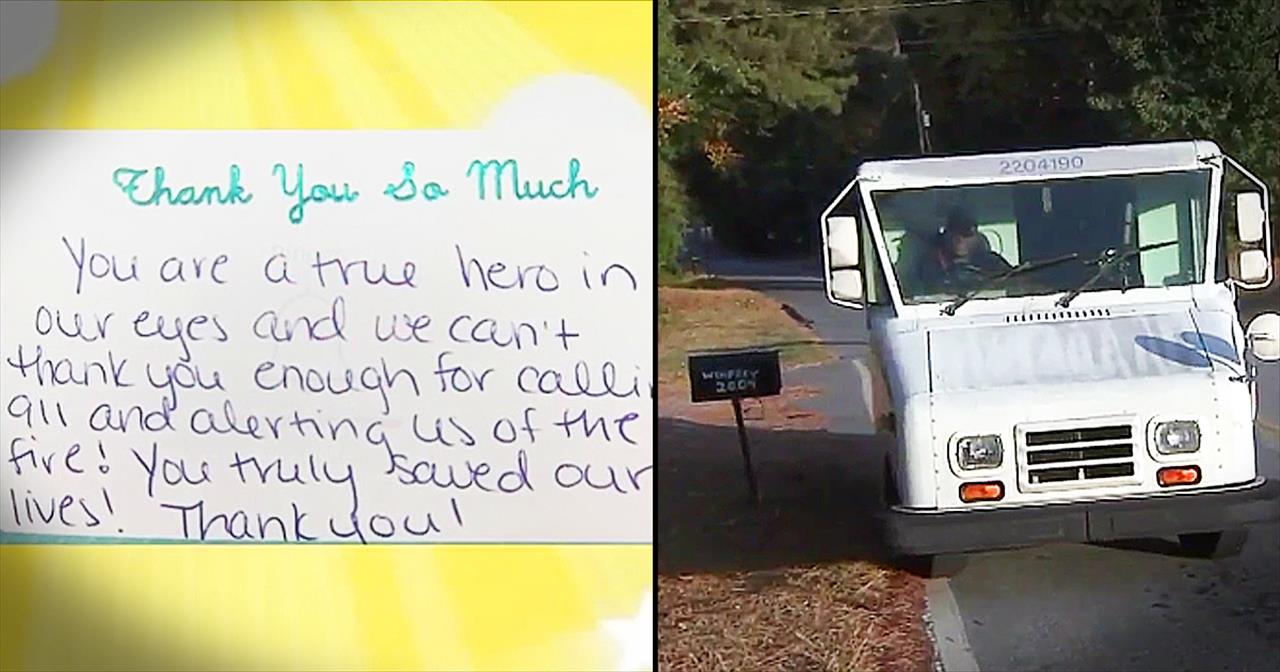 Thank You So Much
You are a true hero in
our eyes and we can't
thank you enough for calli
911 and alerting us of the
fire! You truly saved our
lives! Thank you!
2204190
WINFREY
2004